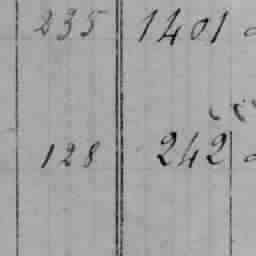 235 1401
128 242